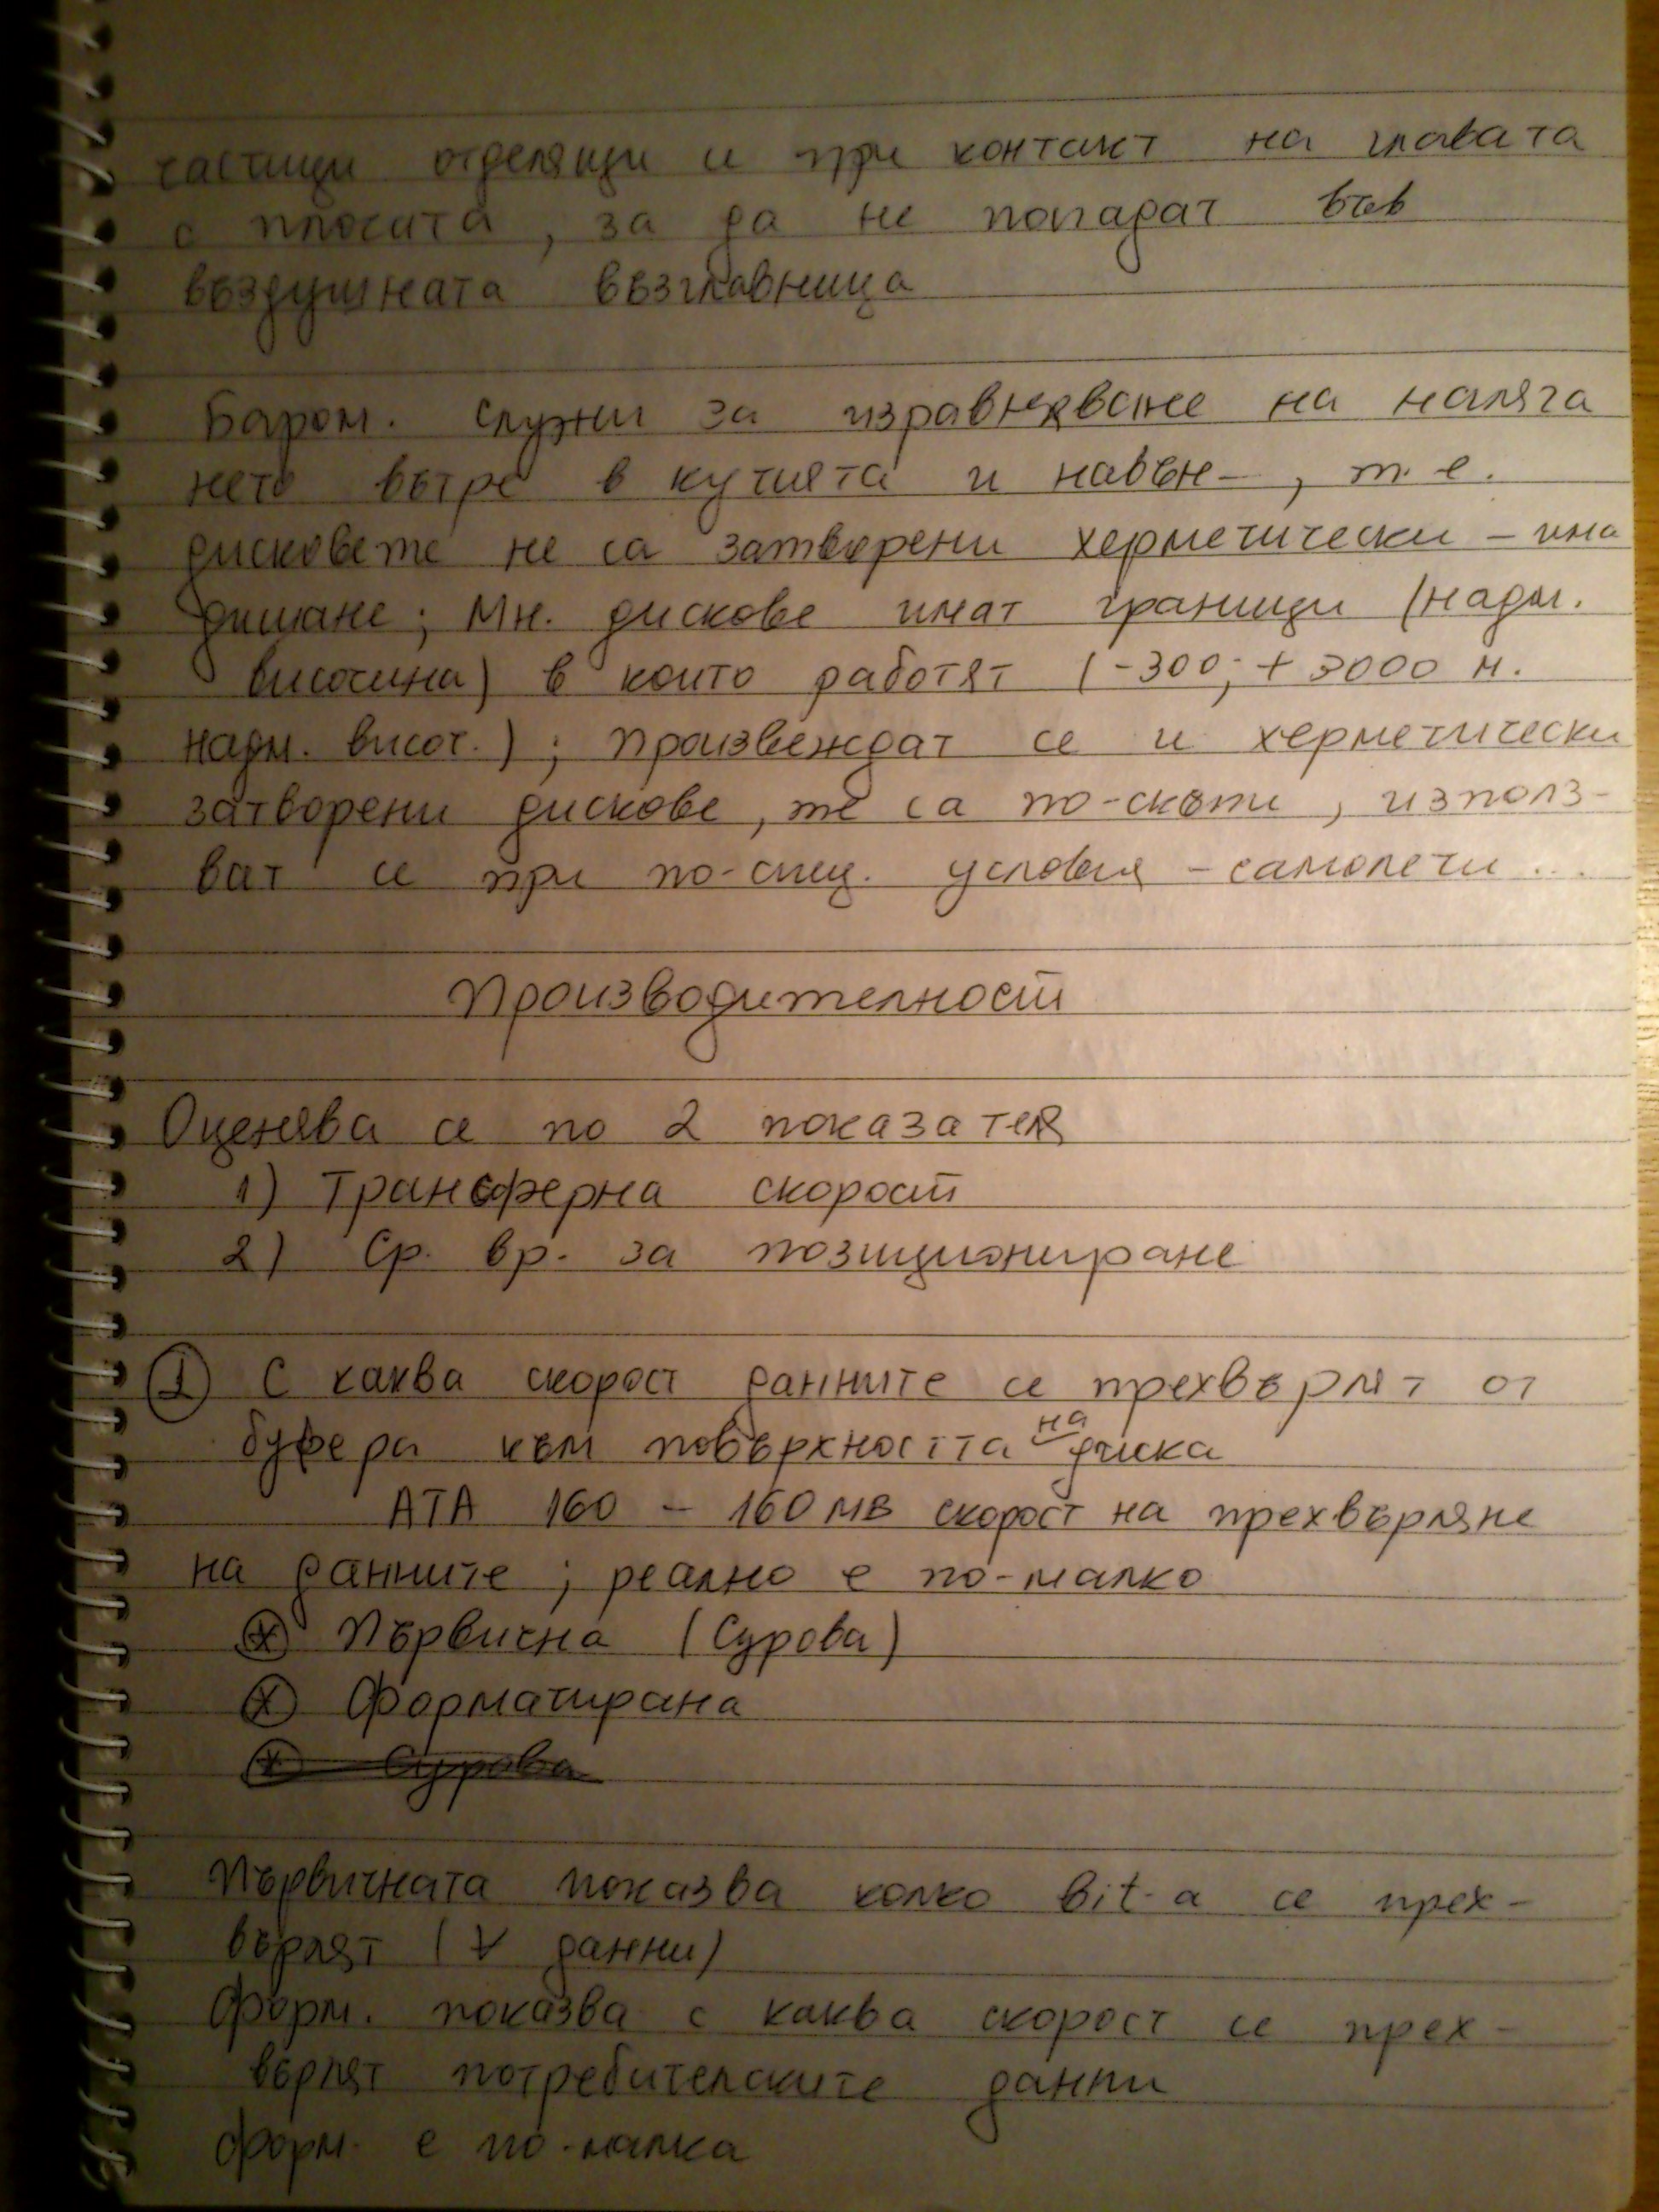 частици отделящи се при контакт на главата
с плочата, за да не попадат във
въздушната възглавница
Баром. служи за изравняване на наляга
нето вътре в кутията и навън-, т.е.
дисковете не са затворени херметически - има
дишане; Мн. дискове имат граници (надм.
височина) в които работят (-300; +3000 м.
надм. височ.); произвеждат се и херметически
затворени дискове, те са по-скъпи, използ-
ват се при по-спец. условия - самолети ...
Производителност
Оценява се по 2 показателя
1) Трансферна скорост
2) Ср. вр. за позициониране
1 С каква скорост данните се прехвърлят от
буфера към повърхността на диска
АТА 160 - 160 MB скорост на прехвърляне
на данните; реално е по-малко
* Първична (Сурова)
* Форматирана
* Сурова
Първичната показва колко bit-а се прех-
върлят (∀ данни)
Форм. показва с каква скорост се прех-
върлят потребителските данни
Форм. е по-малка